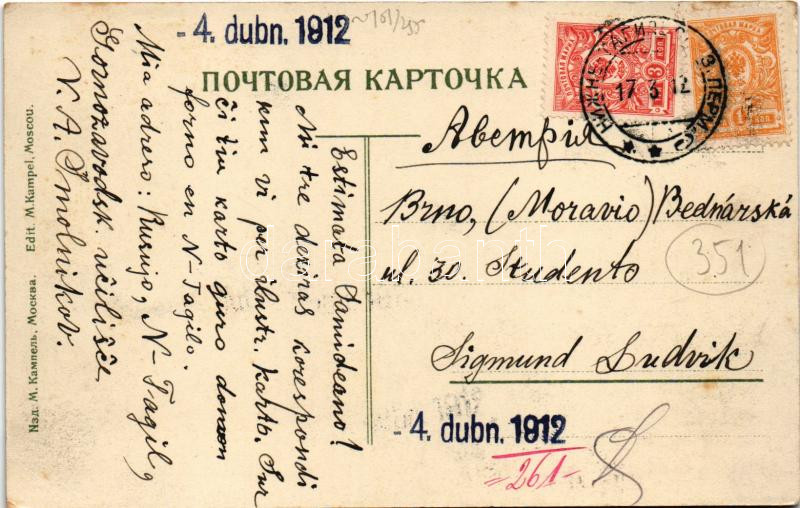 - 4. dubn. 1912
ПОЧТОВАЯ КАРТОЧКА
Estimata Samideano!
Mi tre deziras korespondi
kun vi per ilustr. karto. Sur
ĉi tiu karto guro domon
forno en N-Tagilo.
Mia adreso: Rusujo, N-Tagil,
Gornozavodsk. učilišče
V. A. Smolnikov.
Изд. М. Кампель, Москва. Edit. M. Kampel, Moscou.
3 КОП.
17 3 12
Австрія
Brno, (Moravio) Bednárská
ul. 30. Studento
Sigmund Ludvik
351
- 4. dubn. 1912
-261-
darabanth